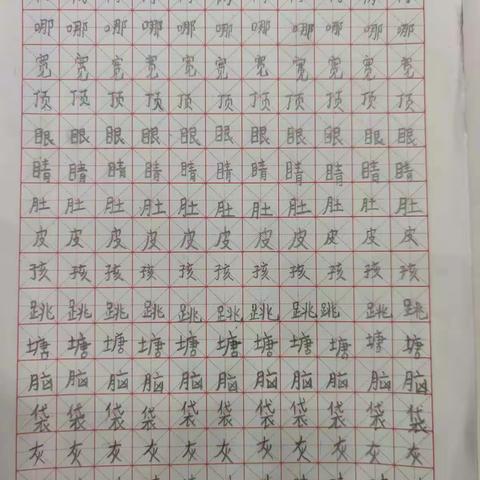 哪 哪 哪 哪 哪 哪 哪 哪 哪 哪 哪
宽 宽 宽 宽 宽 宽 宽 宽 宽 宽 宽
顶 顶 顶 顶 顶 顶 顶 顶 顶 顶 顶
眼 眼 眼 眼 眼 眼 眼 眼 眼 眼 眼
睛 睛 睛 睛 睛 睛 睛 睛 睛 睛 睛
肚 肚 肚 肚 肚 肚 肚 肚 肚 肚 肚
皮 皮 皮 皮 皮 皮 皮 皮 皮 皮 皮
孩 孩 孩 孩 孩 孩 孩 孩 孩 孩 孩
跳 跳 跳 跳 跳 跳 跳 跳 跳 跳 跳
塘 塘 塘 塘 塘 塘 塘 塘 塘 塘 塘
脑 脑 脑 脑 脑 脑 脑 脑 脑 脑 脑
袋 袋 袋 袋 袋 袋 袋 袋 袋 袋 袋
灰 灰 灰 灰 灰 灰 灰 灰 灰 灰 灰